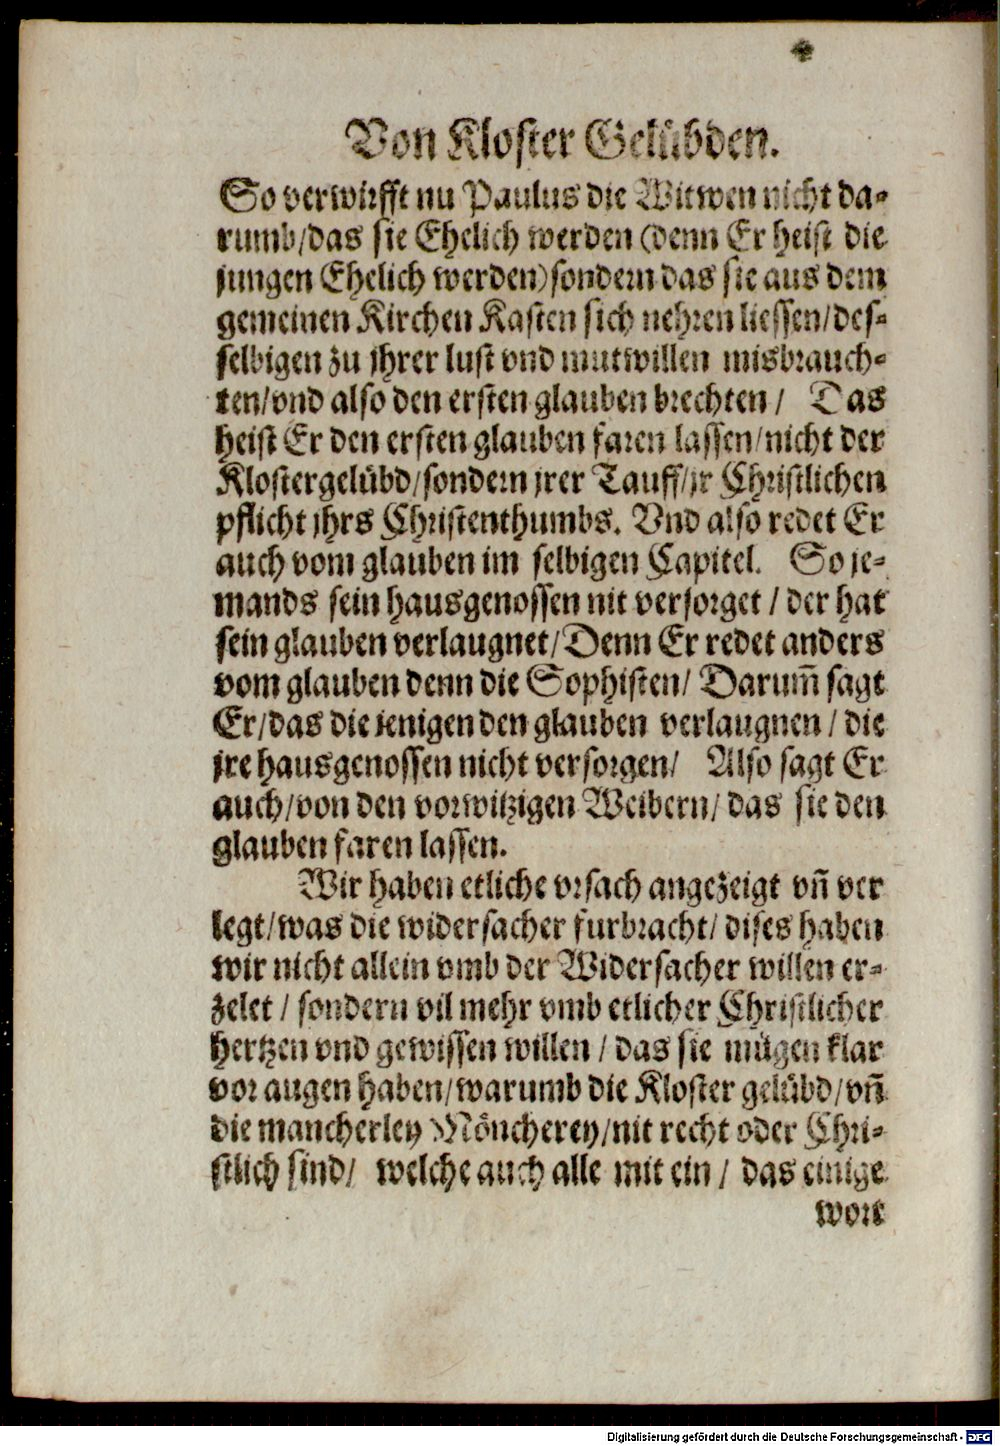 Von Kloster Gelübden.
So verwirfft nu Paulus die Witwen nicht da-
rumb/das sie Ehelich werden (denn Er heist die
jungen Ehelich werden) sondern das sie aus dem
gemeinen Kirchen Kasten sich nehren liessen/des-
selbigen zu jhrer lust vnd mutwillen misbrauch-
ten/vnd also den ersten glauben brechten / Das
heist Er den ersten glauben faren lassen/nicht der
Klostergelübd/sondern jrer Tauff/jr Christlichen
pflicht jhrs Christenthumbs. Vnd also redet Er
auch vom glauben im selbigen Capitel. So je-
mands sein hausgenossen nit versorget / der hat
sein glauben verlaugnet/Denn Er redet anders
vom glauben denn die Sophisten/ Darum̃ sagt
Er/das die jenigen den glauben verlaugnen / die
jre hausgenossen nicht versorgen/ Also sagt Er
auch/von den vorwitzigen Weibern/ das sie den
glauben faren lassen.
Wir haben etliche vrsach angezeigt vñ ver
legt/was die widersacher furbracht/ dises haben
wir nicht allein vmb der Widersacher willen er-
zelet / sondern vil mehr vmb etlicher Christlicher
hertzen vnd gewissen willen / das sie mügen klar
vor augen haben/warumb die Kloster gelübd/vñ
die mancherley Möncherey/nit recht oder Chri-
stlich sind/ welche auch alle mit ein / das einige
wort
Digitalisierung gefördert durch die Deutsche Forschungsgemeinschaft - DFG